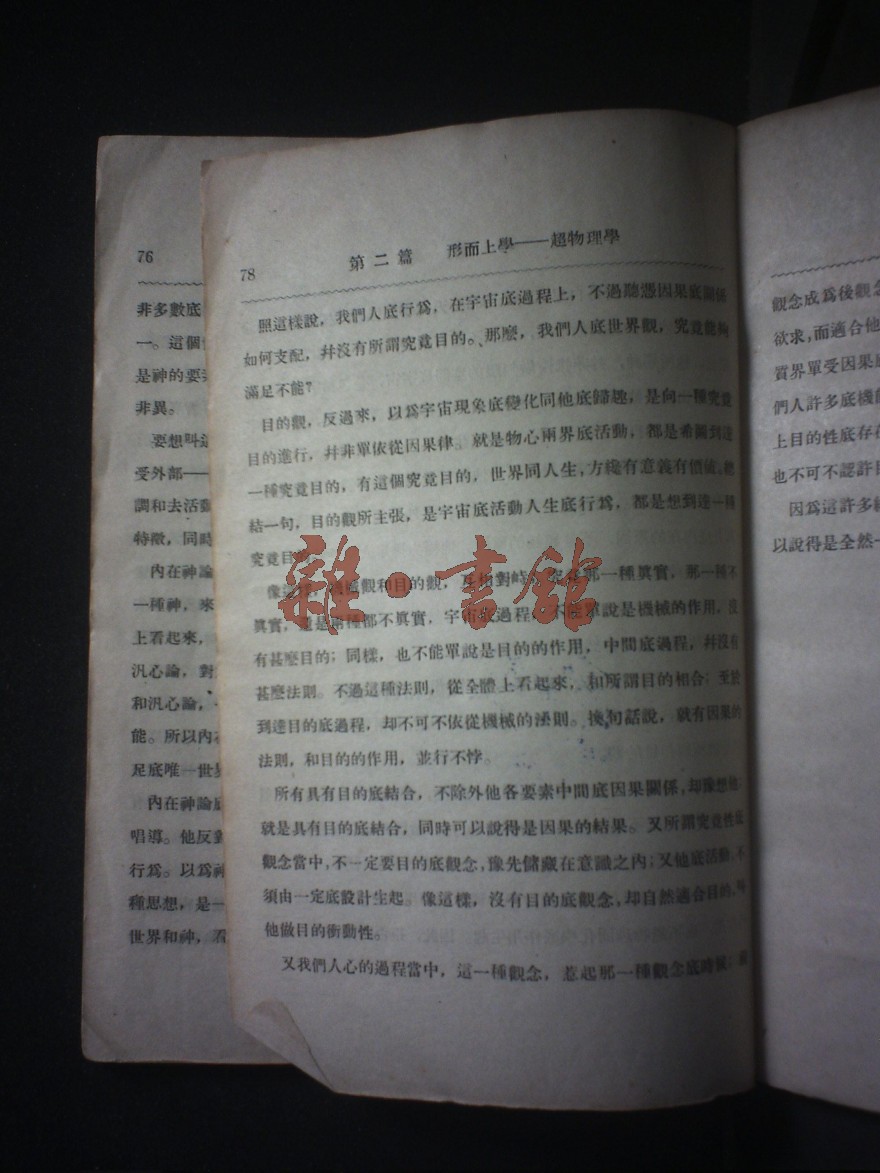 76
非多數底
一。這個
是神的要
非異。
要想
受外部——
調和去活動
特徵，同時
內在神論
一種神，來
上看起來，
汎心論，對
和汎心論，
能。所以內在
足底唯一世界
內在神論底
唱導。他反對
行爲。以爲神
種思想，是一
世界和神，看
78
第二篇 形而上學——超物理學
照這樣說，我們人底行爲，在宇宙底過程上，不過聽憑因果底關係
如何支配，幷沒有所謂究竟目的。那麼，我們人底世界觀，究竟能夠
滿足不能？
目的觀，反過來，以爲宇宙現象底變化同他底歸趣，是向一種究竟
目的進行，幷非單依從因果律。就是物心兩界底活動，都是希圖到達
一種究竟目的，有這個究竟目的，世界同人生，方纔有意義有價値。總
結一句，目的觀所主張，是宇宙底活動人生底行爲，都是想到達一種
究竟目的。
像這樣，機械觀和目的觀，互相對峙，究竟那一種眞實，那一種不
眞實，還是兩種都不眞實，宇宙底過程，不能單說是機械的作用，沒
有甚麼目的；同樣，也不能單說是目的的作用，中間底過程，幷沒有
甚麼法則。不過這種法則，從全體上看起來，和所謂目的相合；至於
到達目的底過程，却不可不依從機械的法則。換句話說，就有因果的
法則，和目的的作用，並行不悖。
所有具有目的底結合，不除外他各要素中間底因果關係，却豫想他；
就是具有目的底結合，同時可以說得是因果的結果。又所謂究竟性底
觀念當中，不一定要目的底觀念，豫先儲藏在意識之內；又他底活動，不
須由一定底設計生起。像這樣，沒有目的底觀念，却自然適合目的，叫
他做目的衝動性。
又我們人心的過程當中，這一種觀念，惹起那一種觀念底時候；
觀念成爲後觀念
欲求，而適合他
質界單受因果
們人許多底機
上目的性底存在
也不可不認許目
因爲這許多
以說得是全然一
雜·書館